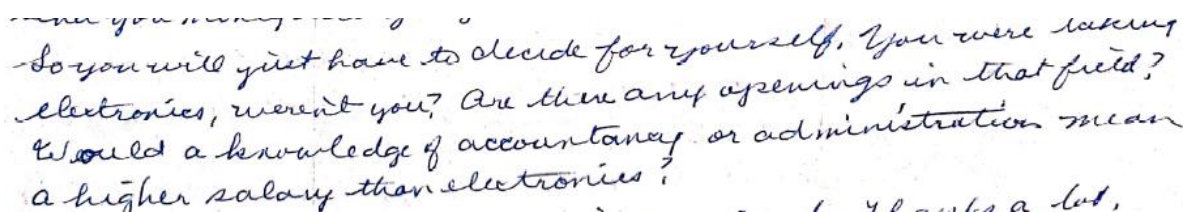 you money
So you will just have to decide for yourself. You were taking
electronics, weren't you? Are there any openings in that field?
Would a knowledge of accountancy or administration mean
a higher salary than electronics?
Thanks a lot,